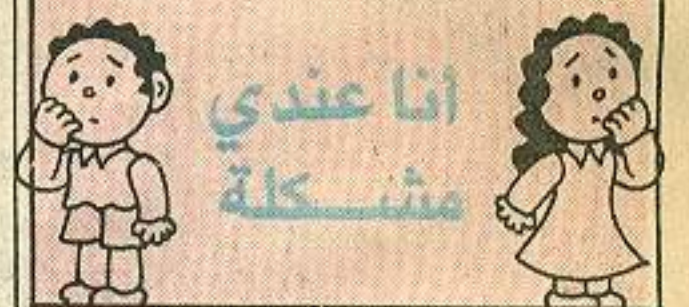 أنا عندي
مشكلة